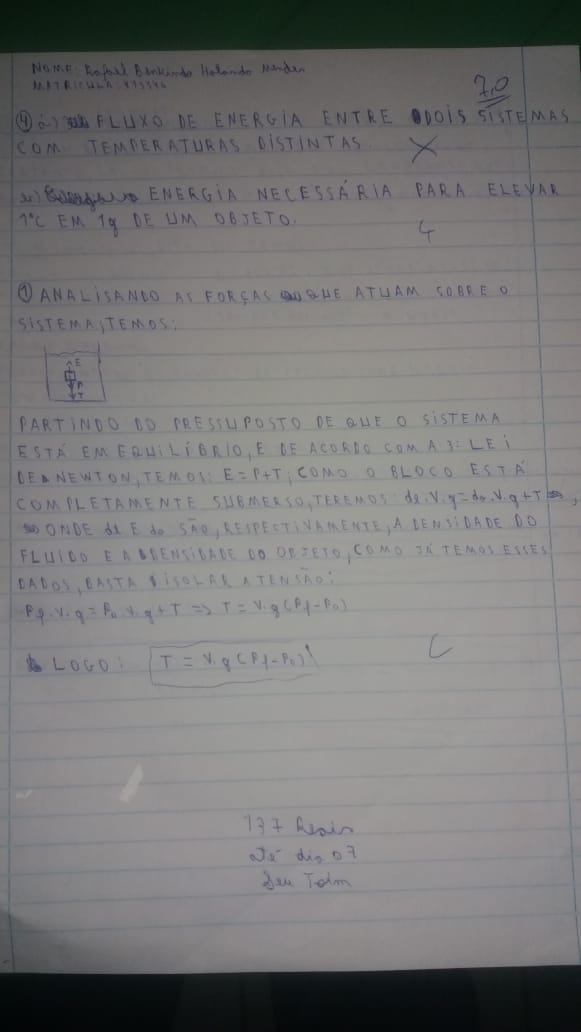 NOME: Rafael Holanda Mendes
MATRÍCULA:
7,0
④ a-) FLUXO DE ENERGIA ENTRE DOIS SISTEMAS
COM TEMPERATURAS DISTINTAS.
ENERGIA NECESSÁRIA PARA ELEVAR
1°C EM 1g DE UM OBJETO.
① ANALISANDO AS FORÇAS QUE ATUAM SOBRE O
SISTEMA, TEMOS:
E
P
T
PARTINDO DO PRESSUPOSTO DE QUE O SISTEMA
ESTÁ EM EQUILÍBRIO, E DE ACORDO COM A 3ª LEI
DE NEWTON, TEMOS: E=P+T, COMO O BLOCO ESTÁ
COMPLETAMENTE SUBMERSO, TEREMOS: df.V.g=do.V.g+T,
ONDE df E do SÃO, RESPECTIVAMENTE, A DENSIDADE DO
FLUIDO E A DENSIDADE DO OBJETO, COMO JÁ TEMOS ESSES
DADOS, BASTA ISOLAR A TENSÃO:
Pf.V.g=Po.V.g+T => T=V.g(Pf-Po)
LOGO: T=V.g(Pf-Po)
C
137 Reais
até dia 07
Seu